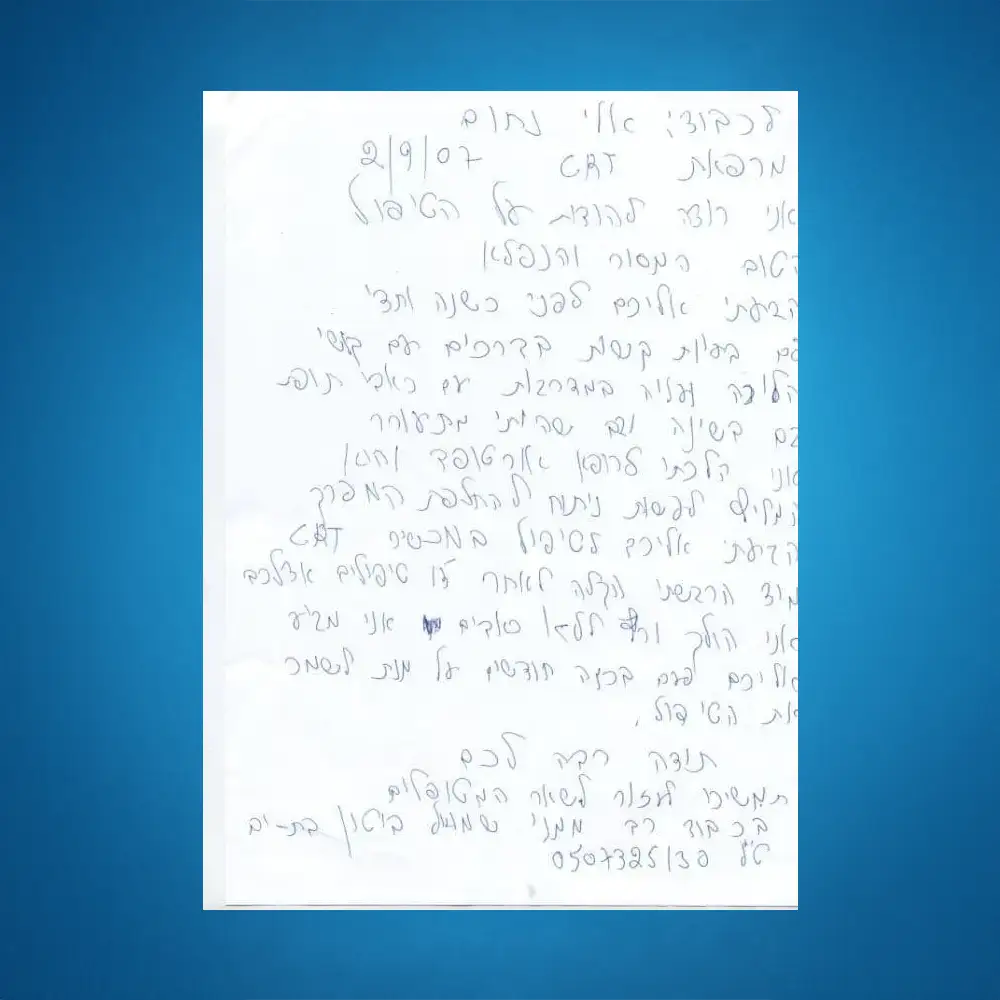 לכבוד: אלי נחום
מרפאת CRT 2/9/07
אני רוצה להודות על הטיפול
הטוב המסור והנפלא
הגעתי אליכם לפני כשנה וחצי
עם בעיות קשות בברכיים עם קשיי
הליכה ועליה במדרגות עם כאבי תופת
גם בשינה וגם שהייתי מתעורר
אני הלכתי לרופא אורטופד והוא
המליץ לעשות ניתוח להחלפת המפרק
הגעתי אליכם לטיפול במכשיר CRT
מיד הרגשתי הקלה לאחר טיפולים אצלכם
אני הולך ללא כאבים אני מגיע
אליכם פעם בכמה חודשים על מנת לשמר
את הטיפול.
תודה רבה לכם
תמשיכו לעזור לשאר המטופלים
בכבוד רב ממני שמואל ביטון בת-ים
טל 0507325130